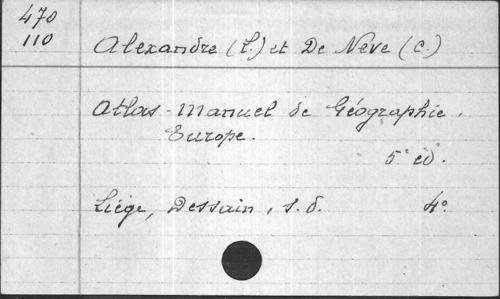 470
110
Alexandre (L.) et De Neve (C.)
Atlas-Manuel de Géographie.
Europe.
5e ed.
Liége, Dessain, s.d. 4°